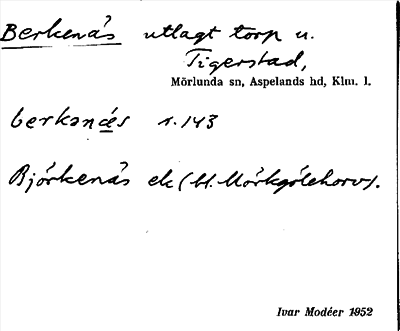 Berkenäs utlagt torp u.
Tigerstad,
Mörlunda sn, Aspelands hd, Klm. l.
berkənæs 1.143
Björkenäs ek (bl. Mörkgölehorv).
Ivar Modéer 1952